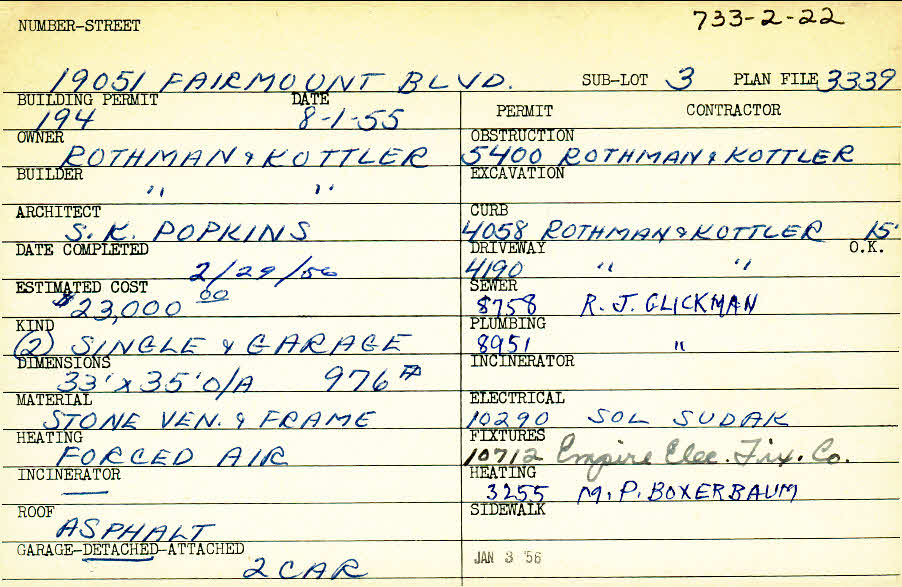 733-2-22
NUMBER-STREET
19051 FAIRMOUNT BLVD. SUB-LOT 3 PLAN FILE 3339
BUILDING PERMIT DATE
194 8-1-55
OWNER
ROTHMAN & KOTTLER
BUILDER
" "
ARCHITECT
S. K. POPKINS
DATE COMPLETED
2/29/56
ESTIMATED COST
$23,000 00
KIND
(2) SINGLE & GARAGE
DIMENSIONS
33' x 35' O/A 976
MATERIAL
STONE VEN. & FRAME
HEATING
FORCED AIR
INCINERATOR
—
ROOF
ASPHALT
GARAGE-DETACHED-ATTACHED
2 CAR
PERMIT CONTRACTOR
OBSTRUCTION
5400 ROTHMAN & KOTTLER
EXCAVATION
CURB
4058 ROTHMAN & KOTTLER 15'
DRIVEWAY O.K.
4190 " "
SEWER
8758 R. J. GLICKMAN
PLUMBING
8951 "
INCINERATOR
ELECTRICAL
10290 SOL SUDAK
FIXTURES
10712 Empire Elec. Fix. Co.
HEATING
3255 M. P. BOXERBAUM
SIDEWALK
JAN 3 '56